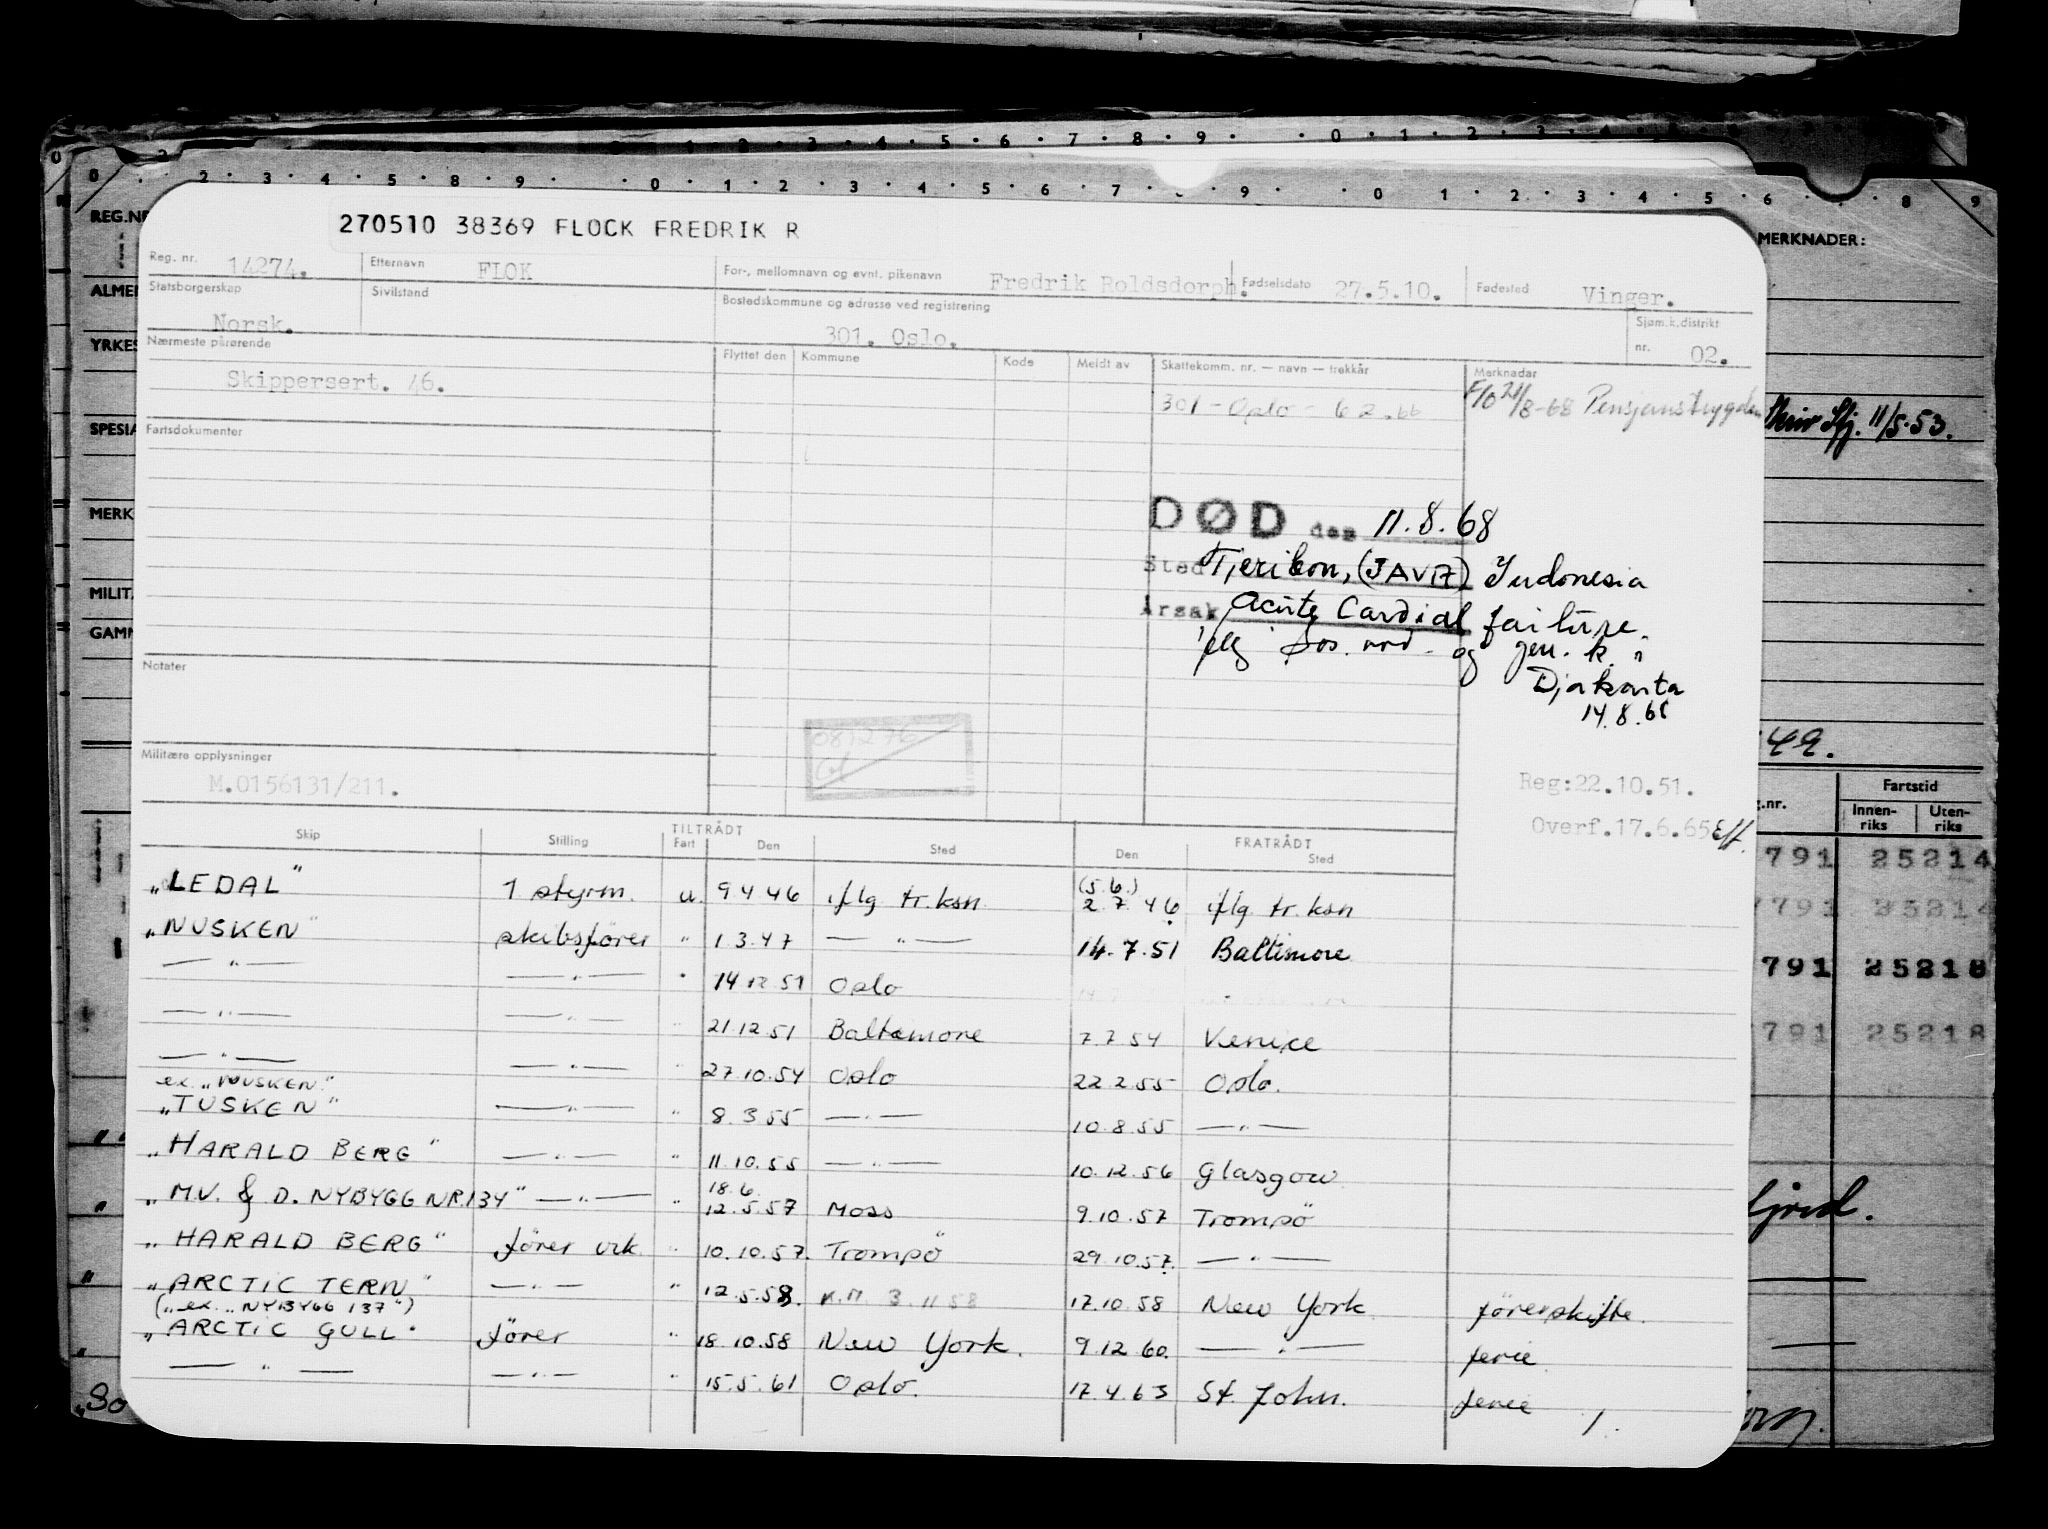 0 · 1 · 2 · 3 · 4 · 5 · 6 · 7 · 8 · 9
REG.NR
MERKNADER:
270510 38369 FLOCK FREDRIK R
Reg. nr. 14274. Etternavn FLOK For-, mellomnavn og evnt. pikenavn Fredrik Roldsdorph. Fødselsdato 27.5.10. Fødested Vinger.
Statsborgerskap Norsk. Sivilstand Bostedskommune og adresse ved registrering 301. Oslo. Sjøm.k.distrikt nr. 02.
Nærmeste pårørende Flyttet den Kommune Kode Meldt av Skattekomm. nr. — navn — trekkår Merknader
Skippersert. 46.
301 - Oslo - 62.66
8-68 Pensjonstrygden
11/5.53.
Fartsdokumenter
DØD den 11.8.68
Sted Tjeribon, (JAVA) Indonesia
Årsak Acute Cardial failure.
iflg Sos. og gen. k. i
Djakarta
14.8.68
Notater
081276
Militære opplysninger
M.0156131/211.
Reg:22.10.51.
Overf.17.6.65
Skip Stilling TILTRÅDT Fart Den Sted FRATRÅDT Den Sted
"LEDAL" 1 styrm. u. 9 4 46 iflg tr.ksn (5.6.) 2.7.46 iflg tr. ksn
"NUSKEN" skibsfører " 1 3.47 — " — 14.7.51 Baltimore
— " — — " — " 14 12 51 Oslo
— " — — " — " 21.12.51 Baltimore 7.7 54 Venice
— " — — " — " 27.10.54 Oslo 22 2.55 Oslo.
ex. "NUSKEN"
"TUSKEN" — " — " 8. 3 55 — " — 10 8.55 — " —
"HARALD BERG" — " — " 11.10.55 — " — 10.12.56 Glasgow
"M.V. & D. NYBYGG NR.134" — " — " 18.6. 12.5.57 Moss 9.10.57 Tromsö
"HARALD BERG" förer vik. " 10.10.57. Tromsö 29.10.57. — " —
"ARCTIC TERN" — " — " 12.5.58. K.M. 3.11 58 17.10.58 New York förerskifte.
("ex. "NYBYGG 137")
"ARCTIC GULL" förer " 18.10.58 New York. 9.12 60. — " — ferie
— " — — " — " 15.5.61 Oslo. 17.4.63 St. John. ferie
ALMEN
YRKES
SPESIA
MERK
MILITÆ
GAMM
49.
Fartstid
g.nr. Innen-riks Uten-riks
791 25214
7791 25214
791 25218
791 25218